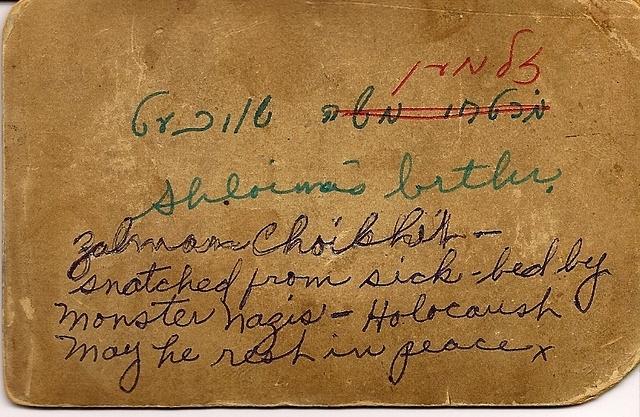 זלמן
Shloima's brther.
Zalman Choikhit -
snatched from sick-bed by
Monster Nazis - Holocaust
May he rest in peace x